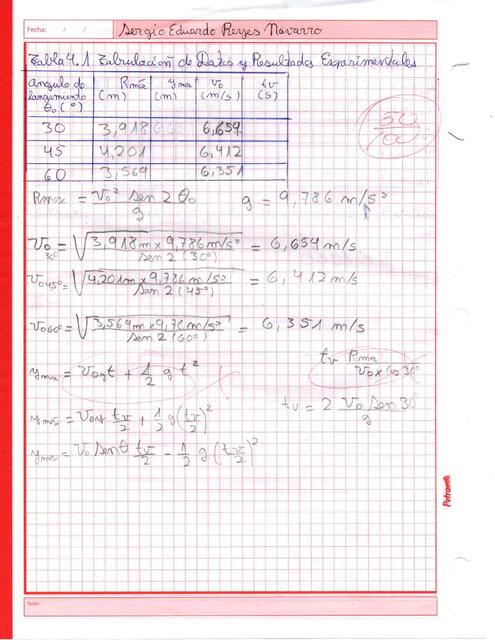 Fecha: / /
Sergio Eduardo Reyes Navarro
Tabla 4.1 Tabulación de Datos y Resultados Experimentales
Angulo de lanzamiento θ₀ (°) | Rmáx (m) | ymax (m) | v₀ (m/s) | tv (s)
30 | 3,918 | | 6,659
45 | 4,201 | | 6,412
60 | 3,569 | | 6,351
50/100
Rmax = v₀² sen 2 θ₀ / g g = 9,786 m/s²
v₀ 30° = √(3,918m x 9,786 m/s² / sen 2 (30°)) = 6,654 m/s
v₀45° = √(4,201m x 9,786 m/s² / sen 2 (45°)) = 6,412 m/s
v₀60° = √(3,569m x 9,78 m/s² / sen 2 (60°)) = 6,351 m/s
ymax = v₀yt + 1/2 g t²
tv Rmax / v₀x cos 30°
ymáx = v₀y tv/2 + 1/2 g(tv/2)²
tv = 2 v₀ sen 30 / g
ymax = v₀ senθ tv/2 - 1/2 g (tv/2)²
Nota: